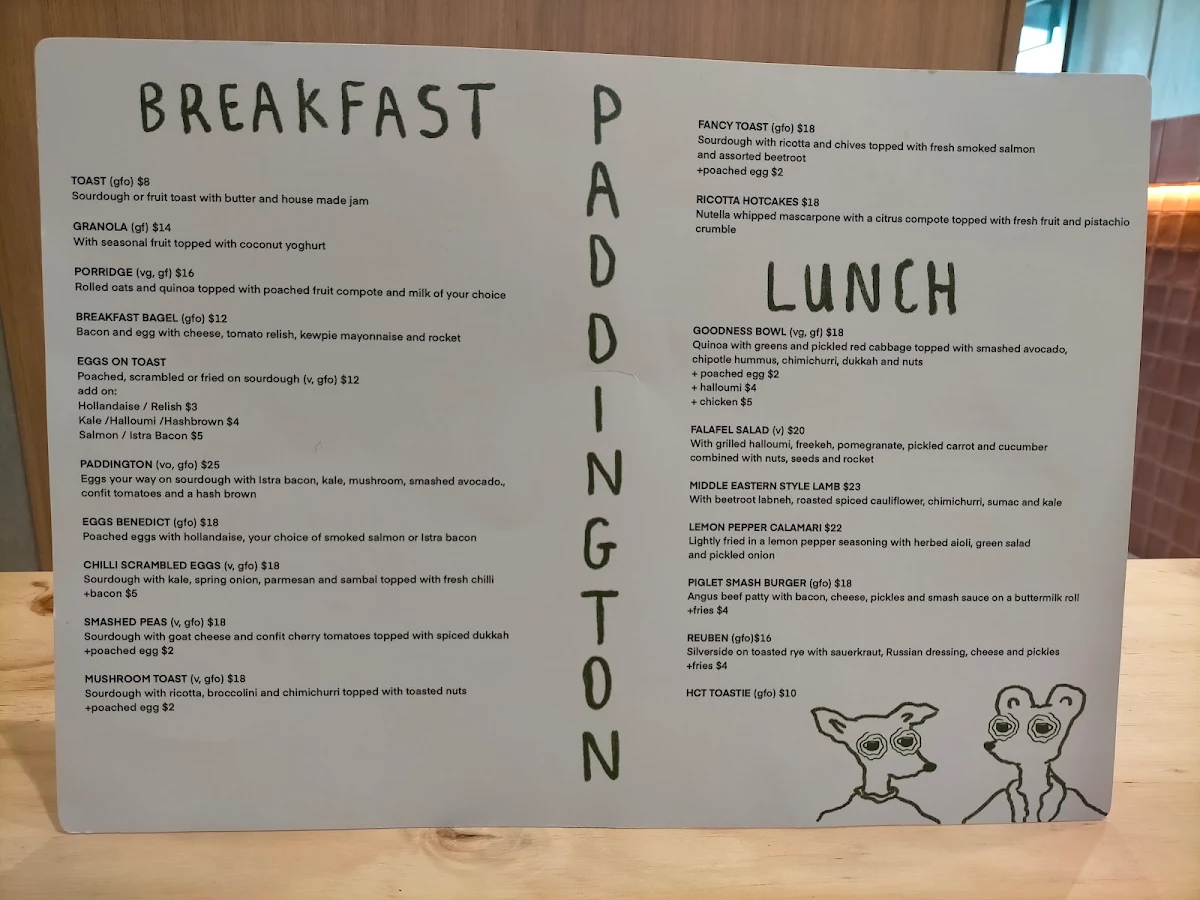 BREAKFAST
TOAST (gfo) $8
Sourdough or fruit toast with butter and house made jam
GRANOLA (gf) $14
With seasonal fruit topped with coconut yoghurt
PORRIDGE (vg, gf) $16
Rolled oats and quinoa topped with poached fruit compote and milk of your choice
BREAKFAST BAGEL (gfo) $12
Bacon and egg with cheese, tomato relish, kewpie mayonnaise and rocket
EGGS ON TOAST
Poached, scrambled or fried on sourdough (v, gfo) $12
add on:
Hollandaise / Relish $3
Kale /Halloumi /Hashbrown $4
Salmon / Istra Bacon $5
PADDINGTON (vo, gfo) $25
Eggs your way on sourdough with Istra bacon, kale, mushroom, smashed avocado.,
confit tomatoes and a hash brown
EGGS BENEDICT (gfo) $18
Poached eggs with hollandaise, your choice of smoked salmon or Istra bacon
CHILLI SCRAMBLED EGGS (v, gfo) $18
Sourdough with kale, spring onion, parmesan and sambal topped with fresh chilli
+bacon $5
SMASHED PEAS (v, gfo) $18
Sourdough with goat cheese and confit cherry tomatoes topped with spiced dukkah
+poached egg $2
MUSHROOM TOAST (v, gfo) $18
Sourdough with ricotta, broccolini and chimichurri topped with toasted nuts
+poached egg $2
PADDINGTON
FANCY TOAST (gfo) $18
Sourdough with ricotta and chives topped with fresh smoked salmon
and assorted beetroot
+poached egg $2
RICOTTA HOTCAKES $18
Nutella whipped mascarpone with a citrus compote topped with fresh fruit and pistachio
crumble
LUNCH
GOODNESS BOWL (vg, gf) $18
Quinoa with greens and pickled red cabbage topped with smashed avocado,
chipotle hummus, chimichurri, dukkah and nuts
+ poached egg $2
+ halloumi $4
+ chicken $5
FALAFEL SALAD (v) $20
With grilled halloumi, freekeh, pomegranate, pickled carrot and cucumber
combined with nuts, seeds and rocket
MIDDLE EASTERN STYLE LAMB $23
With beetroot labneh, roasted spiced cauliflower, chimichurri, sumac and kale
LEMON PEPPER CALAMARI $22
Lightly fried in a lemon pepper seasoning with herbed aioli, green salad
and pickled onion
PIGLET SMASH BURGER (gfo) $18
Angus beef patty with bacon, cheese, pickles and smash sauce on a buttermilk roll
+fries $4
REUBEN (gfo)$16
Silverside on toasted rye with sauerkraut, Russian dressing, cheese and pickles
+fries $4
HCT TOASTIE (gfo) $10